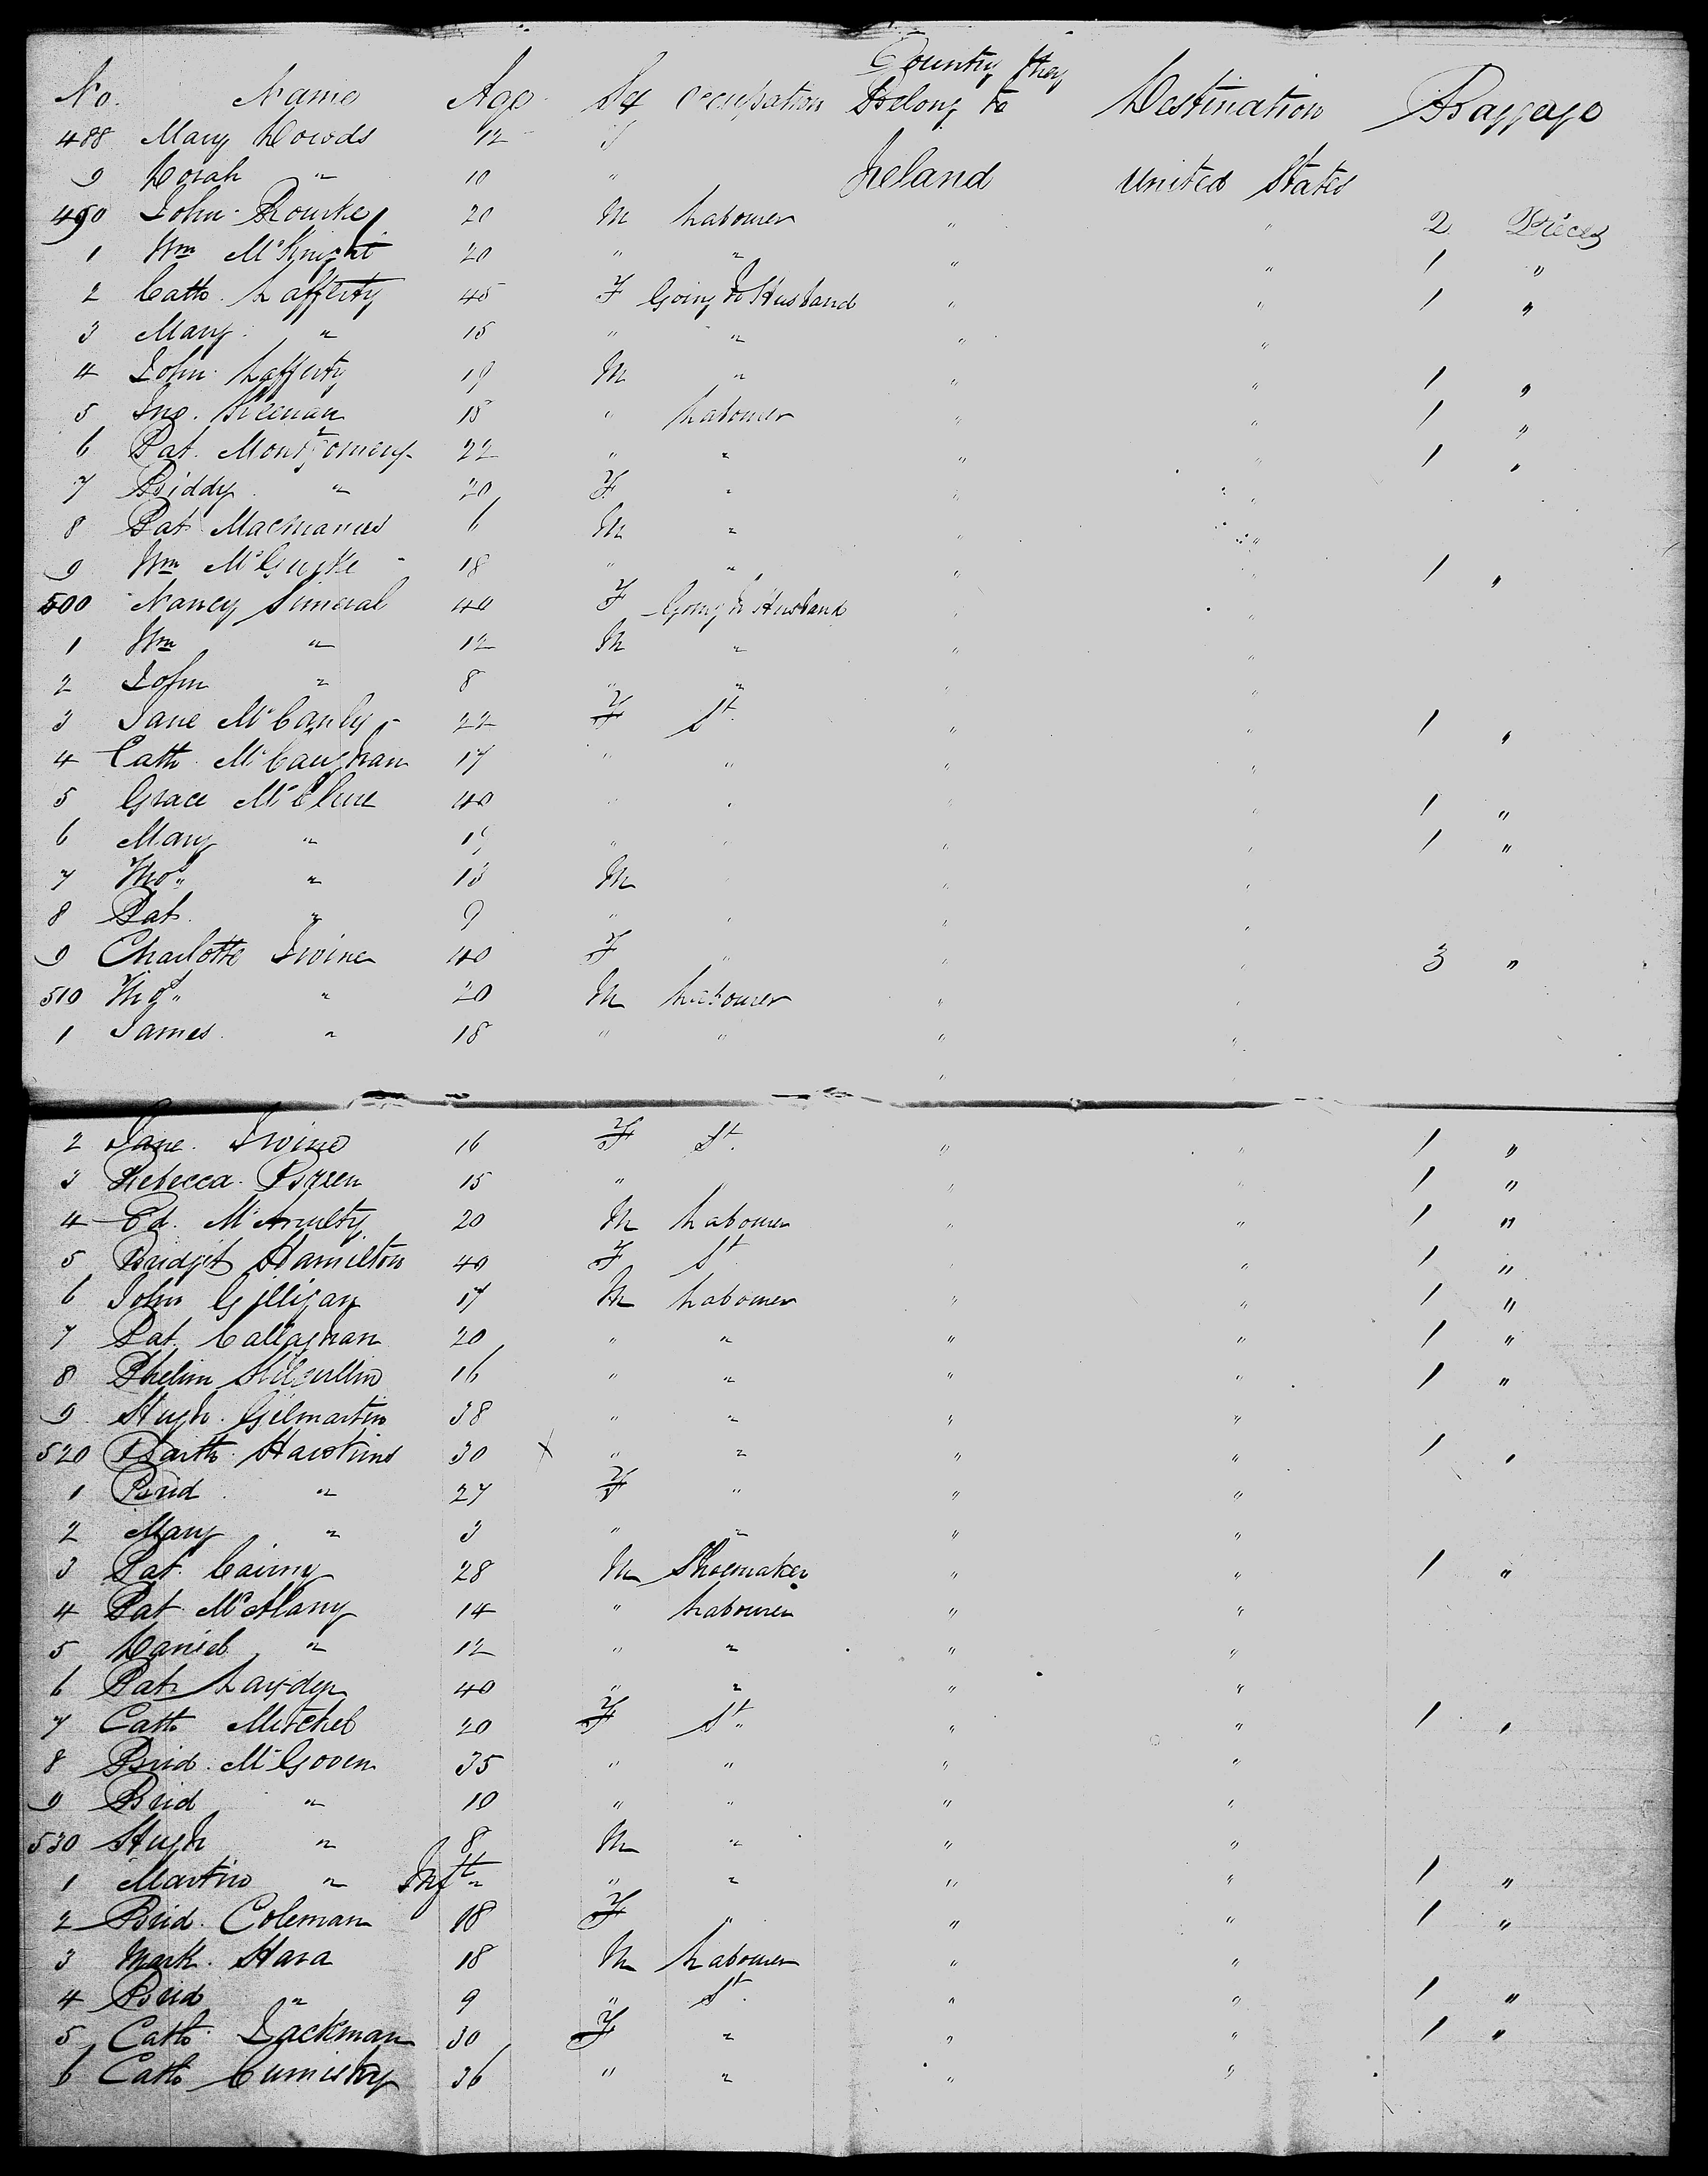 Country they
No. Name Age Sex Occupation Belong to Destination Baggage
488 Mary Dowds 12 F
9 Dorah " 10 " Ireland United States
490 John Rourke 20 M Labourer " " 2 Pieces
1 Wm McKnight 20 " " " " 1 "
2 Cath. Lafferty 45 F Going to Husband " " 1 "
3 Mary " 15 " " " "
4 John Lafferty 19 M " " " 1 "
5 Jno. Keenan 15 " Labourer " " 1 "
6 Pat. Montgomery 22 " " " " 1 "
7 Biddy " 20 F " " "
8 Pat Macmanus 6 M " " "
9 Wm McGurke 18 " " " " 1 "
500 Nancy Simeral 40 F Going to Husband " "
1 Wm " 12 M " " "
2 John " 8 " " " "
3 Jane McCanly 22 F St. " " 1 "
4 Cath McCaughan 17 " " " "
5 Grace McClure 40 " " " " 1 "
6 Mary " 19 " " " " 1 "
7 Thos " 13 M " "
8 Pat " 9 " " " "
9 Charlotte Irvine 40 F " " " 3 "
510 Thos " 20 M Labourer " "
1 James " 18 " " " "
2 Jane Irvine 16 F St. " " 1 "
3 Rebecca Breen 15 " " " " 1 "
4 Ed. McAnulty 20 M Labourer " " 1 "
5 Bridget Hamilton 40 F St " " 1 "
6 John Gilligan 17 M Labourer " " 1 "
7 Pat. Callaghan 20 " " " " 1 "
8 Phelim 16 " " " " 1 "
9 Hugh Gilmartin 38 " " " "
520 Barth. Hawkins 30 X " " " " 1 "
1 Brid " 27 F " " "
2 Mary " 3 " " " "
3 Pat. Cairny 28 M Shoemaker " " 1 "
4 Pat 14 " Labourer " "
5 Daniel " 12 " " " "
6 Pat Layden 40 " " " "
7 Cath Mitchel 20 F St. " " 1 "
8 Brid. McGoven 35 " " " "
9 Brid " 10 " " " "
530 Hugh " 8 M " " "
1 Martin " Inft " " " " 1 "
2 Brid. Coleman 18 F " " " 1 "
3 Mark. Hara 18 M Labourer " "
4 Brid " 9 " St. " " 1 "
5 Cath. Jackman 30 F " " " 1 "
6 Cath Cumisky 36 " " " "